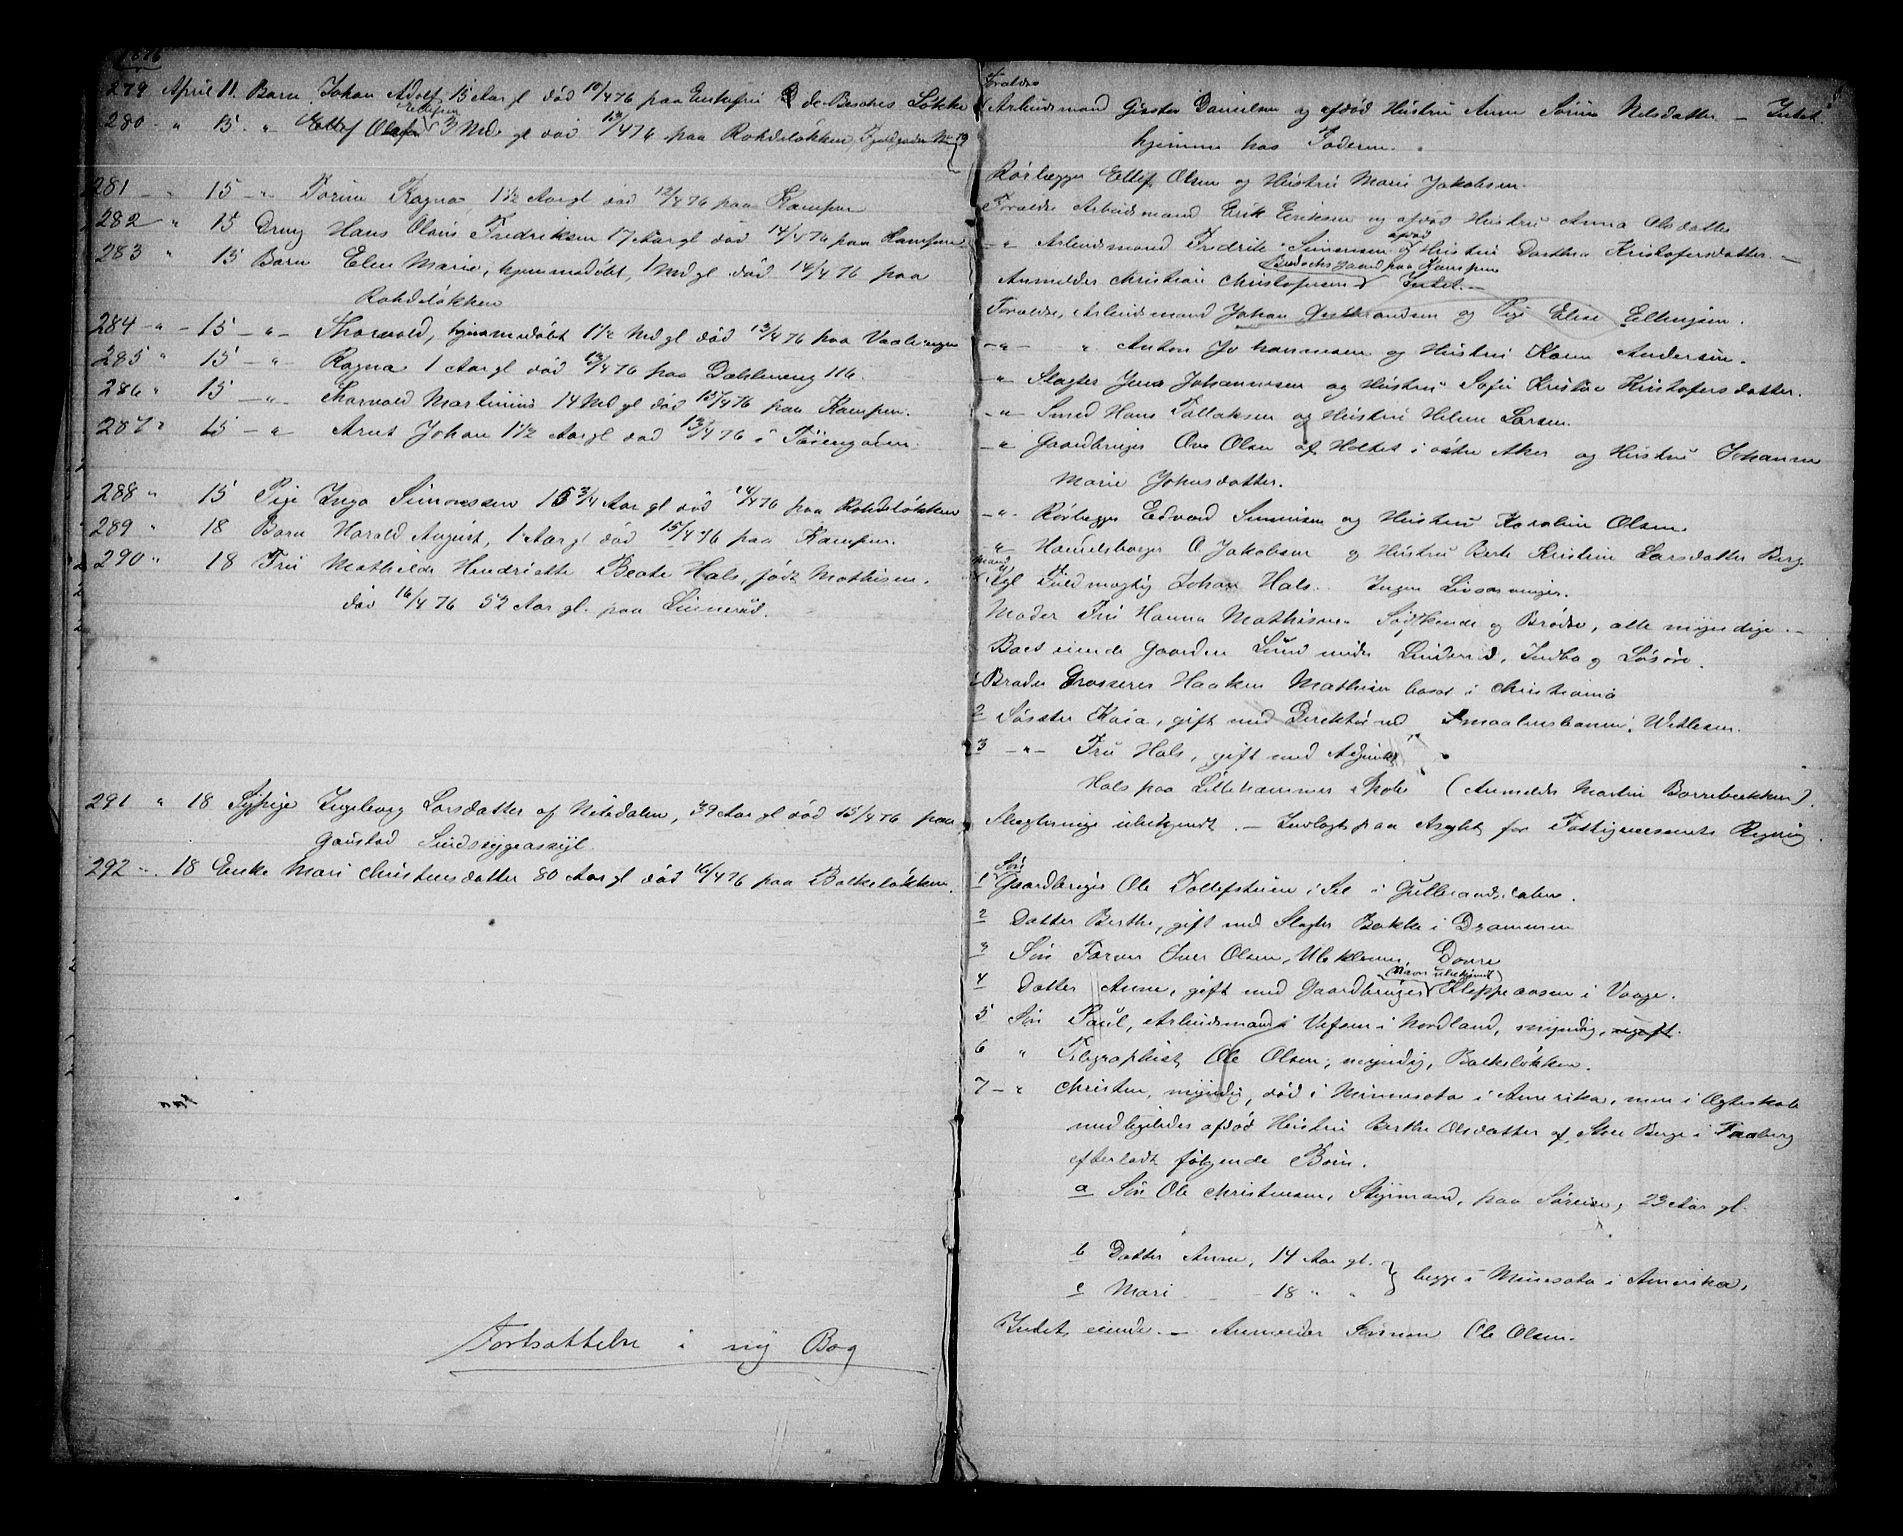 1876
279 April 11. Barn Johan Adolf, 15 Aar gl død 10/4 76 paa Enkefru de Besches Løkke
280 " 15 " Ellef Olsen 3 Mdr gl død 12/4 76 paa Rohdeløkken
281 " 15 " Ragna, 1 1/2 Aar gl død 12/4 76 paa Kampen
282 " 15 Dreng Hans Olaus Fredriksen 17 Aar gl død 14/4 76 paa Kampen
283 " 15 Barn Elen Marie, hjemmedøbt, 1 Md gl død 14/4 76 paa
Rohdeløkken
284 - " - 15 - " - Thorvald, hjemmedøbt 1 1/2 Md gl død 13/4 76 paa Vaalerengen
285 " 15 - " Ragna 1 Aar gl død 13/4 76 paa Dahleneng 116.
286 " 15 - " Thorvald Martinius 14 Md gl død 13/4 76 paa Kampen.
287 " 15 - " Arnt Johan 1 1/2 Aar gl død 13/4 76 i
288 " 15 Pige Inga Simonssen 15 3/4 Aar gl død 14/4 76 paa Rohdeløkken
289 " 18 Barn Harald August, 1 Aar gl død 15/4 76 paa Kampen.
290 " 18 Fru Mathilde Hendriette Beate Hals, født Mathisen.
død 16/4 76 52 Aar gl. paa Linnerud.
291 " 18 Sypige Ingeborg Larsdatter af Nitedalen, 39 Aar gl død 15/4 76 paa
Gaustad Sindssygeasyl.
292 " 18 Enke Mari Christensdatter 80 Aar gl død 16/4 76 paa Balkeløkken.
Fortsættelse i ny Bog
Forældre
Arbeidsmand Danielsen og afdød Hustru Anne Sørine Nelsdatter - Intet.
hjemme hos Faderen.
Rørlægger Ellef Olsen og Hustru Marie Jakobsen.
Forældre Arbeidsmand Erik Eriksen og afdød Hustru Anna Olsdatter
- " Arbeidsmand Fredrik Simensen og afdød Hustru Dorthea Kristofersdatter. -
Anmelder Christian Christofersen paa Kampen Intet. -
Forældre, Arbeidsmand Johan og Pige Elise Ellingsen.
- " - " Anton Johannesen og Hustru Karen Andersen.
- " Slagter Jens Johannesen og Hustru Sofie Kristine Kristofersdatter.
- " Smed Hans Tollaksen og Hustru Helene Larsen.
- " Gaardbruger Ove Olsen af Holtet i østre Aker og Hustru Johanne
Marie Johnsdatter.
- " Rørlægger Edvard Simensen og Hustru Karoline Olsen.
- " Handelsborger O Jakobsen og Hustru Berte Kristine Larsdatter Berg
Mand Fuldmægtig Johan Hals. Ingen Livsarvinger.
Moder Fru Hanna Mathisen Sødskende og Brødre, alle myndige. -
Boet eiende Gaarden Lund under Linderud, Indbo og Løsøre.
1 Broder Grosserer Haaken Mathisen bosat i Christiania
2 Søster Kaia, gift med Direktør ved Smaalensbanen, Wetlesen.
3 - " - Fru Hals, gift med Adjunkt
Hals paa Lillehammer Skole (Anmelder Martin Borrebækken).
Slægtninge ubekjendt. - Indlagt paa Asylet for Fattigvæsenets Regning.
1 Søn Gaardbruger Ole Tollefsheim i Sel i Gulbrandsdalen.
2 Datter Berthe, gift med Slagter Bakke i Drammen
3 Søn Farver Iver Olsen, Dovre
4 Datter Anne, gift med Gaardbruger (Navn ubekjendt) Kleppeaasen i Vaage.
5 Søn Paul, Arbeidsmand i Vefsen i Nordland, myndig, ugift.
6 " Telegraphist Ole Olsen, myndig, Balkeløkken.
7 - " Christen, myndig, død i Minnesota i Amerika, men i Ægteskab
med ligeledes afdød Hustru Berthe Olsdatter af Store Berge i Faaberg
efterladt følgende Børn.
a Søn Ole Christensen, Styrmand, paa Søreise, 23 Aar gl.
b Datter Anne, 14 Aar gl. } begge i Minesota i Amerika,
c Mari - 18 " "
Intet eiende. - Anmelder Sønnen Ole Olsen.